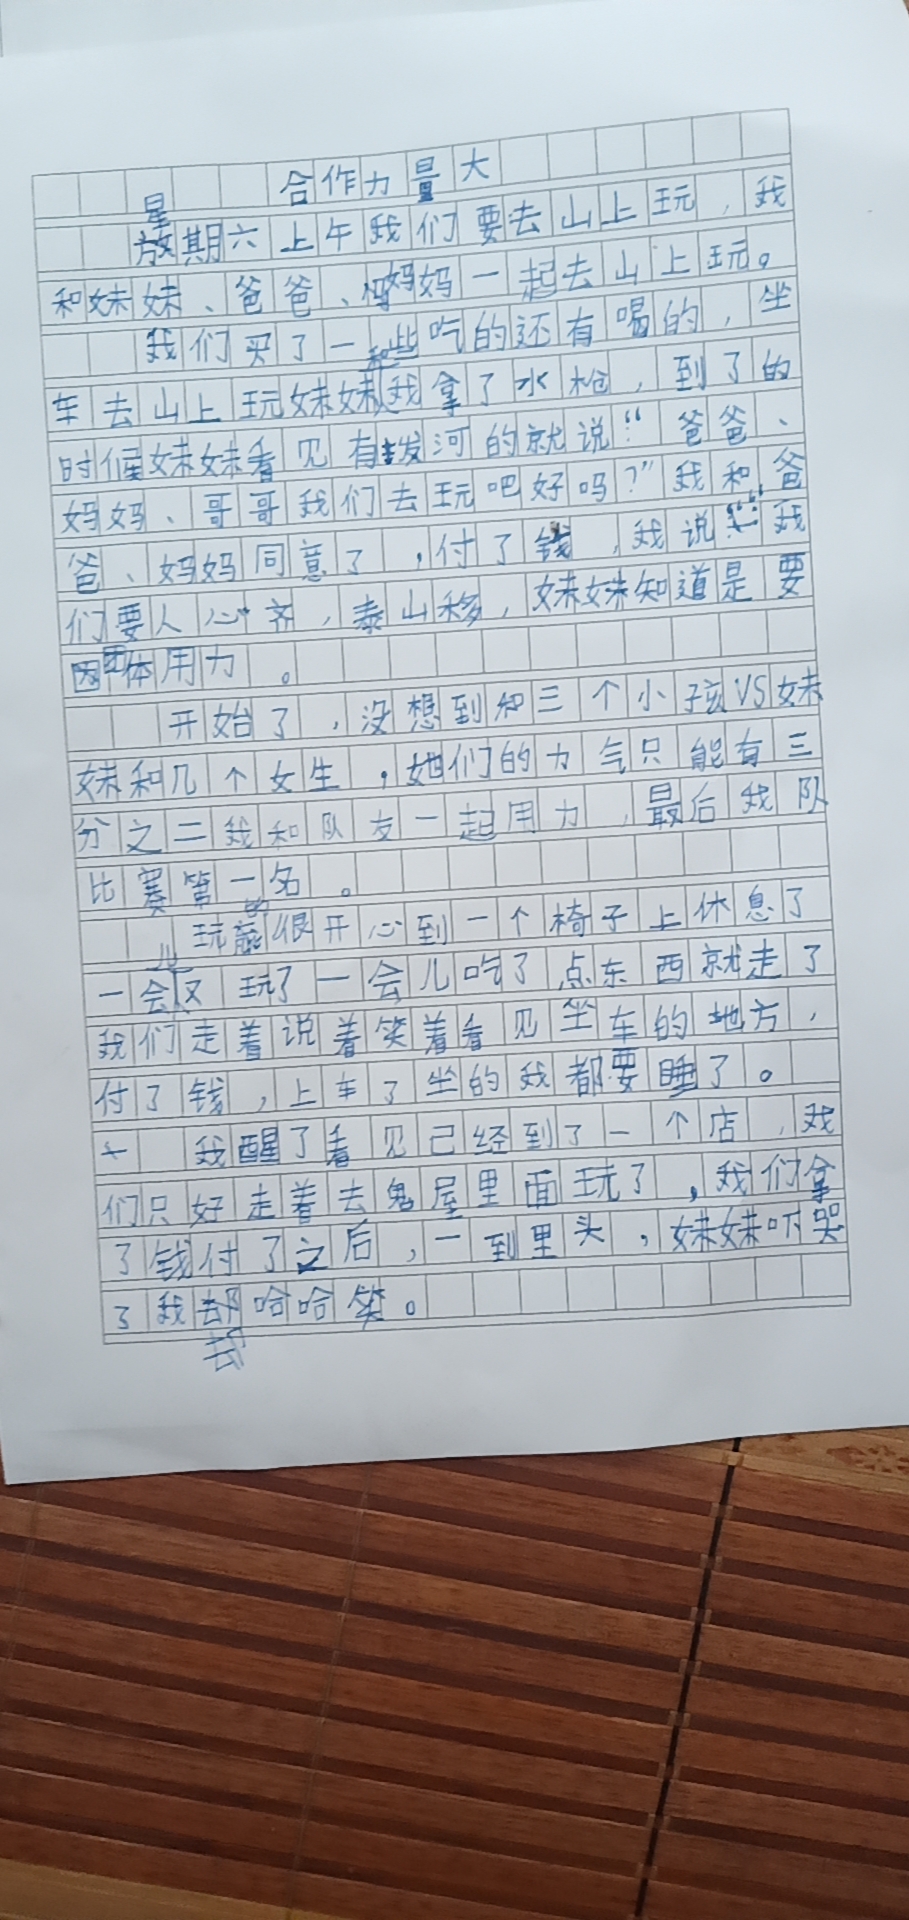 合作力量大
星期六上午我们要去山上玩，我
和妹妹、爸爸、妈妈一起去山上玩。
我们买了一些吃的还有喝的，坐
车去山上玩妹妹和我拿了水枪，到了的
时候妹妹看见有拨河的就说：“爸爸、
妈妈、哥哥我们去玩吧好吗？”我和爸
爸、妈妈同意了，付了钱，我说：“我
们要人心齐，泰山移，妹妹知道是要
团体用力。
开始了，没想到和三个小孩VS妹
妹和几个女生，她们的力气只能有三
分之二我和队友一起用力，最后我队
比赛第一名。
玩的很开心到一个椅子上休息了
一会儿又玩了一会儿吃了点东西就走了
我们走着说着笑着看见坐车的地方，
付了钱，上车了坐的我都要睡了。
我醒了看见已经到了一个店，我
们只好走着去鬼屋里面玩了，我们拿
了钱付了之后，一到里头，妹妹吓哭
了我却哈哈笑。
却